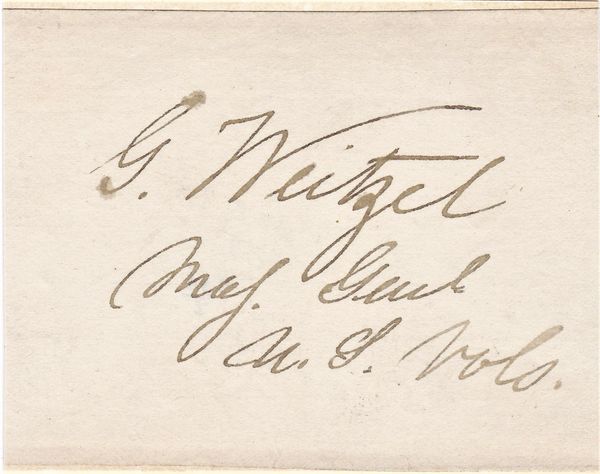 G. Weitzel
Maj. Genl
U. S. Vols.